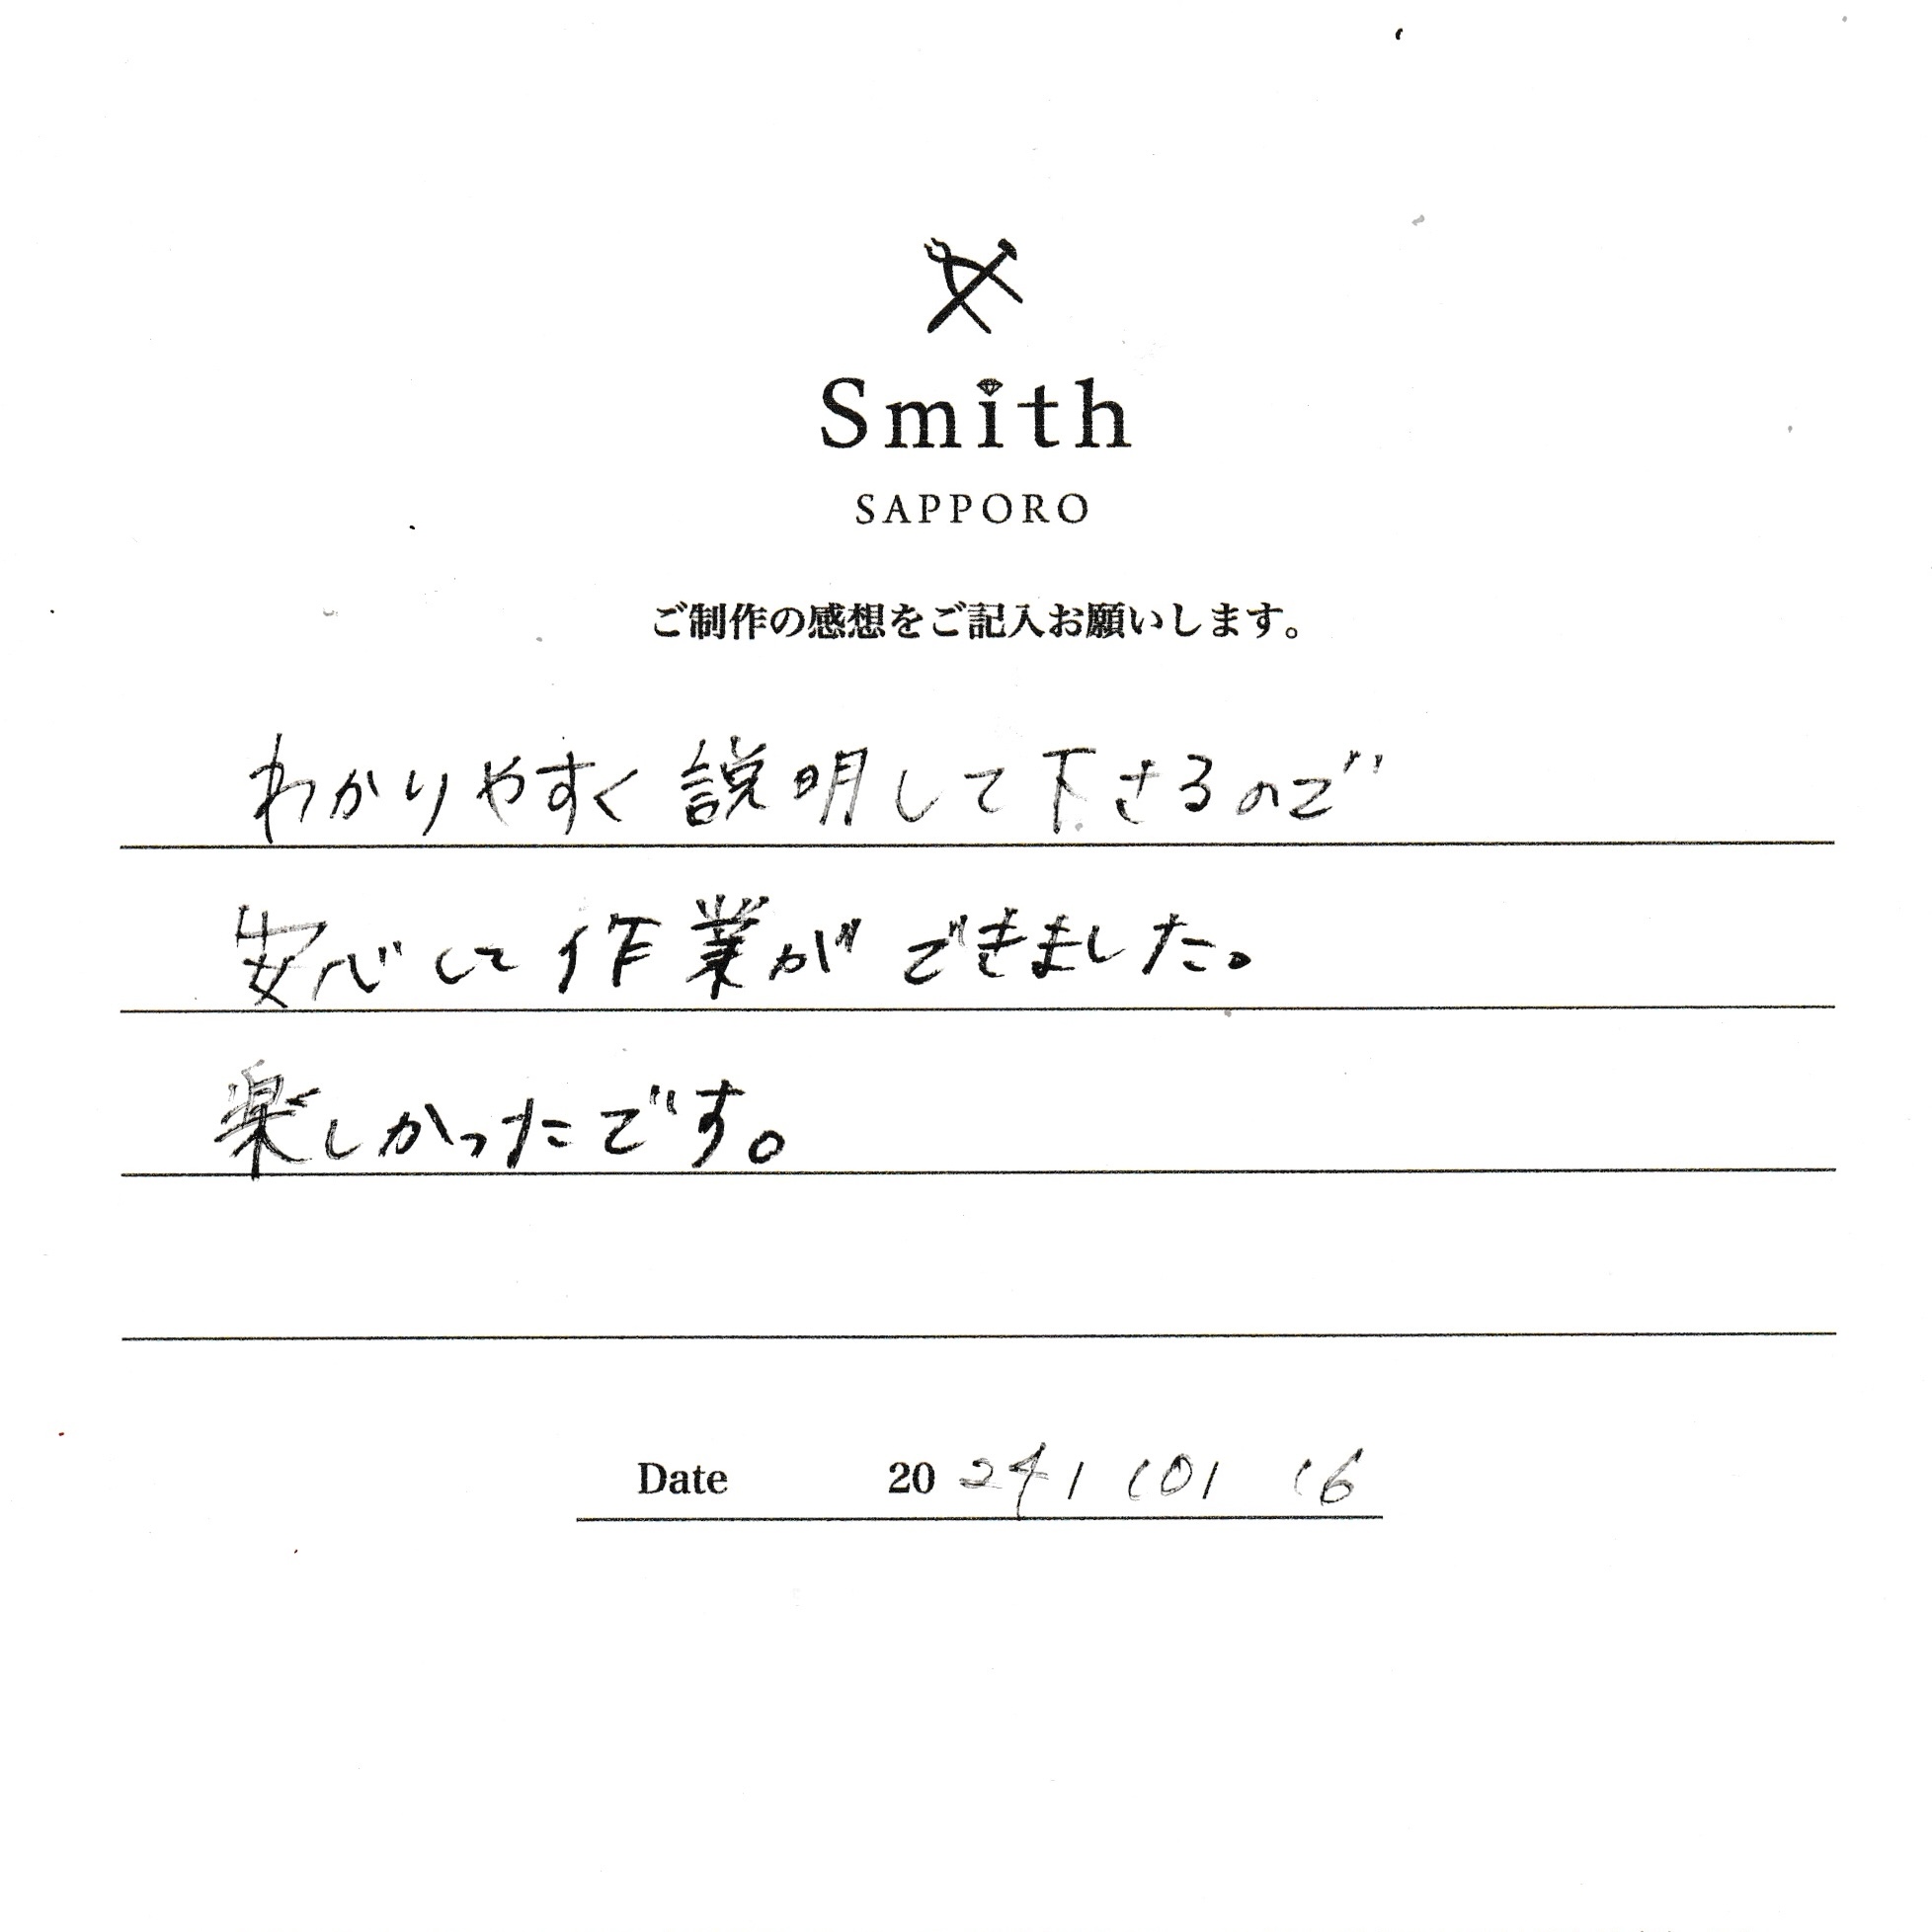 Smith
SAPPORO
ご制作の感想をご記入お願いします。
わかりやすく説明して下さるので
安心して作業ができました。
楽しかったです。
Date 2024/10/16